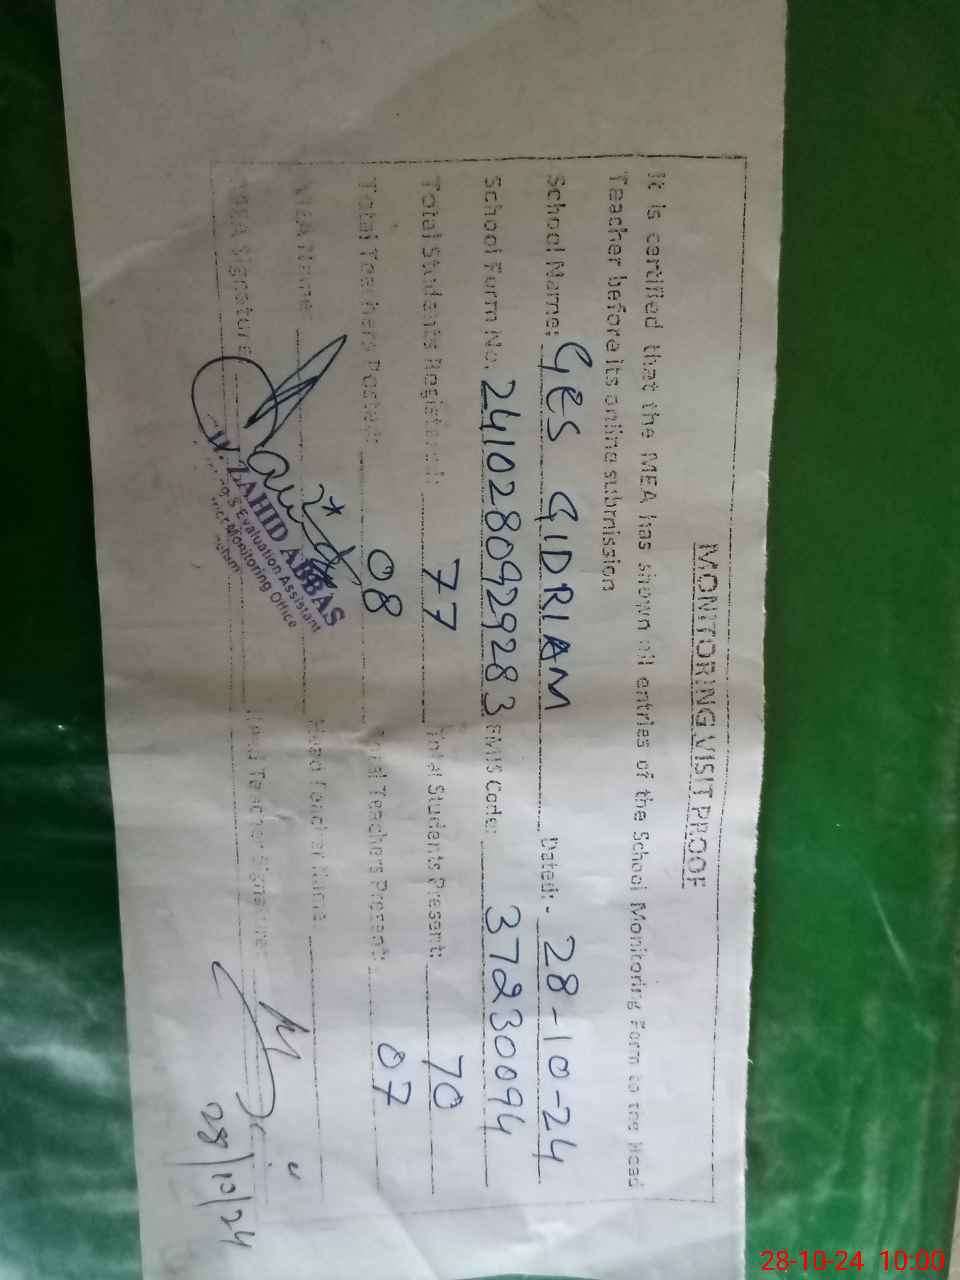 MONITORING VISIT PROOF
It is certified that the MEA has shown all entries of the School Monitoring Form to the Head
Teacher before its online submission
School Name: GES GIDRIAM Dated:- 28-10-24
School Form No. 2410280929283 EMIS Code: 37230094
Total Students Registered: 77 Total Students Present: 70
Total Teachers Posted: 08 Total Teachers Present: 07
MEA Name: Head Teacher Name:
MEA Signature Head Teacher Signature:
ZAHID ABBAS
Evaluation Assistant
Monitoring Office
28/10/24
28-10-24 10:00